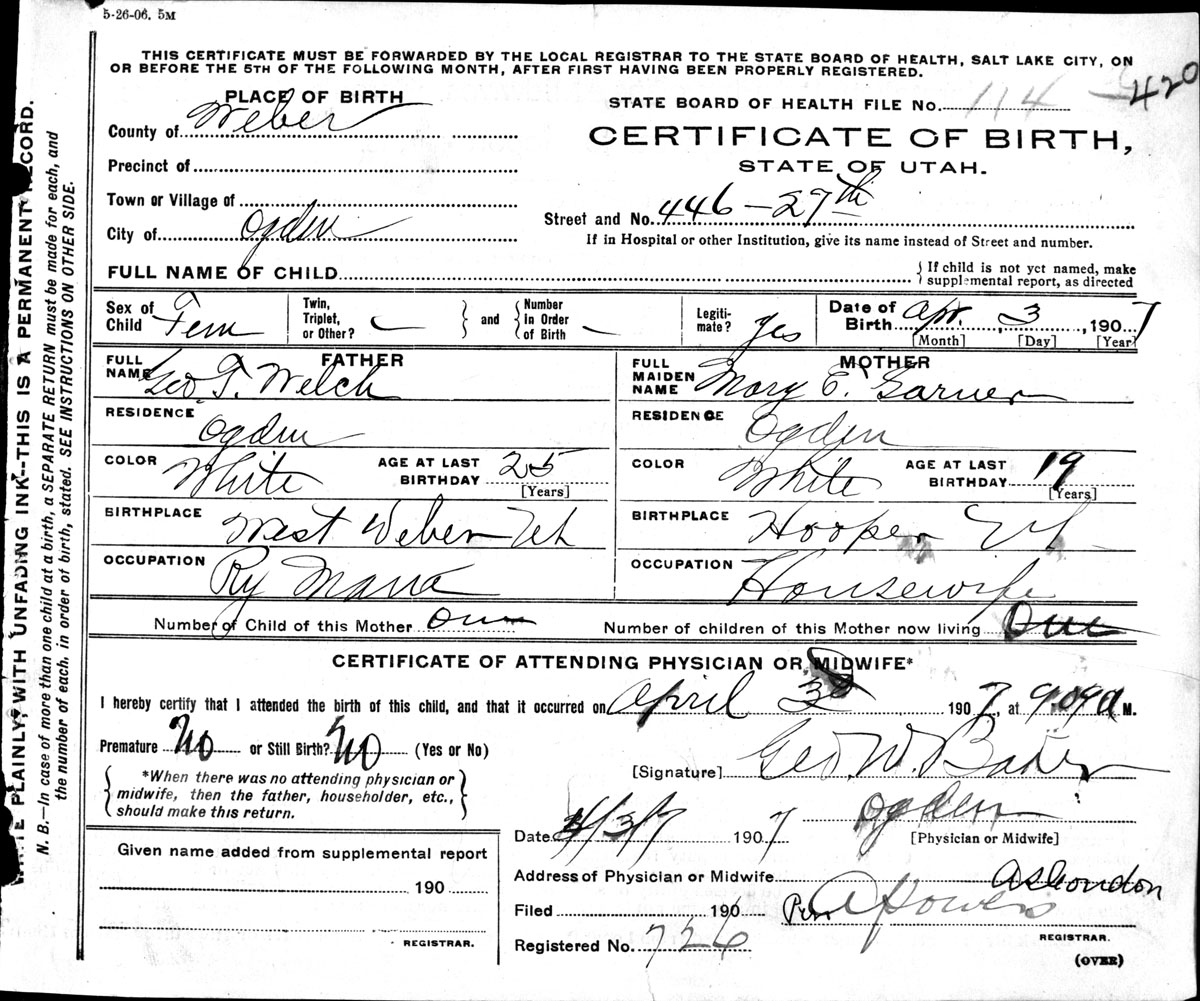 5-26-06. 5M
THIS CERTIFICATE MUST BE FORWARDED BY THE LOCAL REGISTRAR TO THE STATE BOARD OF HEALTH, SALT LAKE CITY, ON
OR BEFORE THE 5TH OF THE FOLLOWING MONTH, AFTER FIRST HAVING BEEN PROPERLY REGISTERED.
PLACE OF BIRTH
County of Weber
Precinct of
Town or Village of
City of Ogden
STATE BOARD OF HEALTH FILE No. 114 - 420
CERTIFICATE OF BIRTH,
STATE OF UTAH.
Street and No. 446 - 27th
If in Hospital or other Institution, give its name instead of Street and number.
FULL NAME OF CHILD
If child is not yet named, make
supplemental report, as directed
Sex of Child Fem
Twin, Triplet, or Other? and Number In Order of Birth
Legiti-mate? Yes
Date of Birth Apr. 3, 1907
[Month] [Day] [Year]
FATHER
FULL NAME Geo. T. Welch
RESIDENCE Ogden
COLOR White AGE AT LAST BIRTHDAY 25
[Years]
BIRTHPLACE West Weber Ut
OCCUPATION Ry
MOTHER
FULL MAIDEN NAME Mary E. Garner
RESIDENCE Ogden
COLOR White AGE AT LAST BIRTHDAY 19
[Years]
BIRTHPLACE Hooper Ut
OCCUPATION Housewife
Number of Child of this Mother One Number of children of this Mother now living One
CERTIFICATE OF ATTENDING PHYSICIAN OR MIDWIFE*
I hereby certify that I attended the birth of this child, and that it occurred on April 3d 1907, at 9.09 a M.
Premature No or Still Birth? No (Yes or No)
*When there was no attending physician or
midwife, then the father, householder, etc.,
should make this return.
[Signature] Geo. W. Baker
Ogden
Date 4/3/7 1907 [Physician or Midwife]
Address of Physician or Midwife
Filed 190
Registered No. 726
REGISTRAR.
(OVER)
Given name added from supplemental report
190
REGISTRAR.
WRITE PLAINLY, WITH UNFADING INK--THIS IS A PERMANENT RECORD.
N. B.—In case of more than one child at a birth, a SEPARATE RETURN must be made for each, and
the number of each, in order of birth, stated. SEE INSTRUCTIONS ON OTHER SIDE.